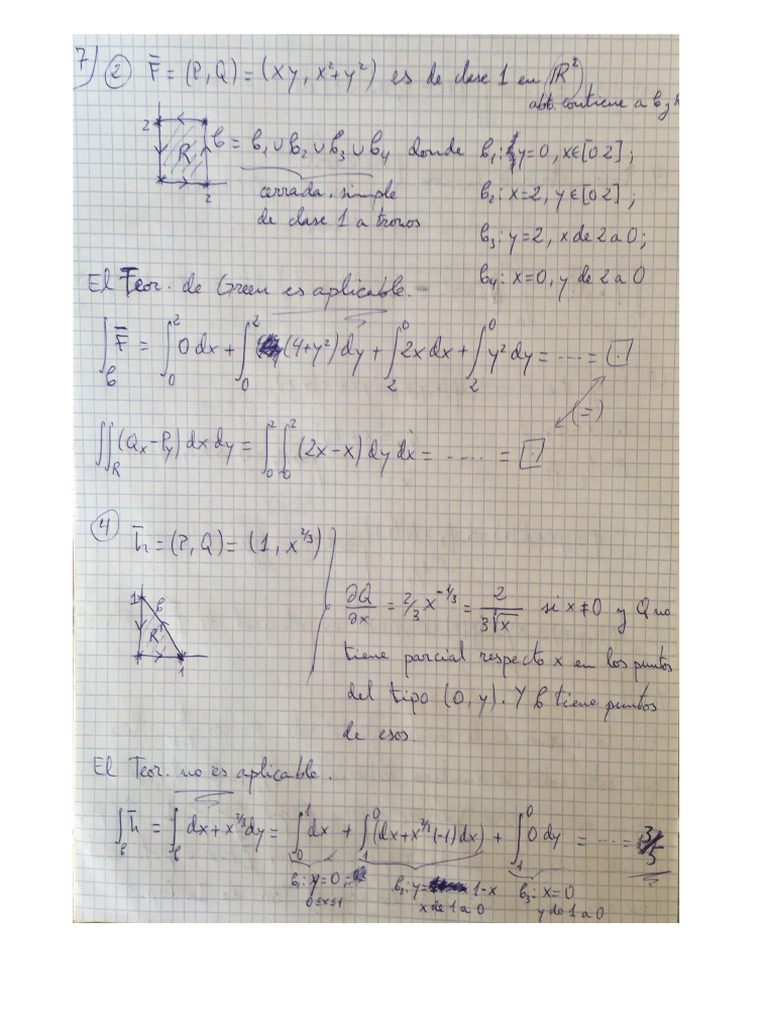 7) ② F̄ = (P, Q) = (xy, x²+y²) es de clase 1 en ℝ²,
abto. contiene a b y R
2 R 2
b = b₁ ∪ b₂ ∪ b₃ ∪ b₄ donde b₁: y=0, x∈[0 2];
cerrada, simple
de clase 1 a trozos
b₂: x=2, y∈[0 2];
b₃: y=2, x de 2 a 0;
b₄: x=0, y de 2 a 0
El Teor. de Green es aplicable.-
∫_b F̄ = ∫₀² 0 dx + ∫₀² (4+y²) dy + ∫₂⁰ 2x dx + ∫₂⁰ y² dy = ---- = [·]
(=)
∬_R (Qx - Py) dx dy = ∫₀² ∫₀² (2x-x) dy dx = ---- = [·]
④ h̄ = (P, Q) = (1, x^{2/3})
1 b R 1
∂Q/∂x = 2/3 x^{-1/3} = 2/(3∛x) si x≠0 y Q no
tiene parcial respecto x en los puntos
del tipo (0, y). Y b tiene puntos
de esos.
El Teor. no es aplicable.
∫_b h̄ = ∫_b dx + x^{2/3} dy = ∫₀¹ dx + ∫₁⁰ (dx + x^{2/3} (-1) dx) + ∫₁⁰ 0 dy = ---- = 3/5
b₁: y=0, 0≤x≤1
b₂: y= 1-x
x de 1 a 0
b₃: x=0
y de 1 a 0